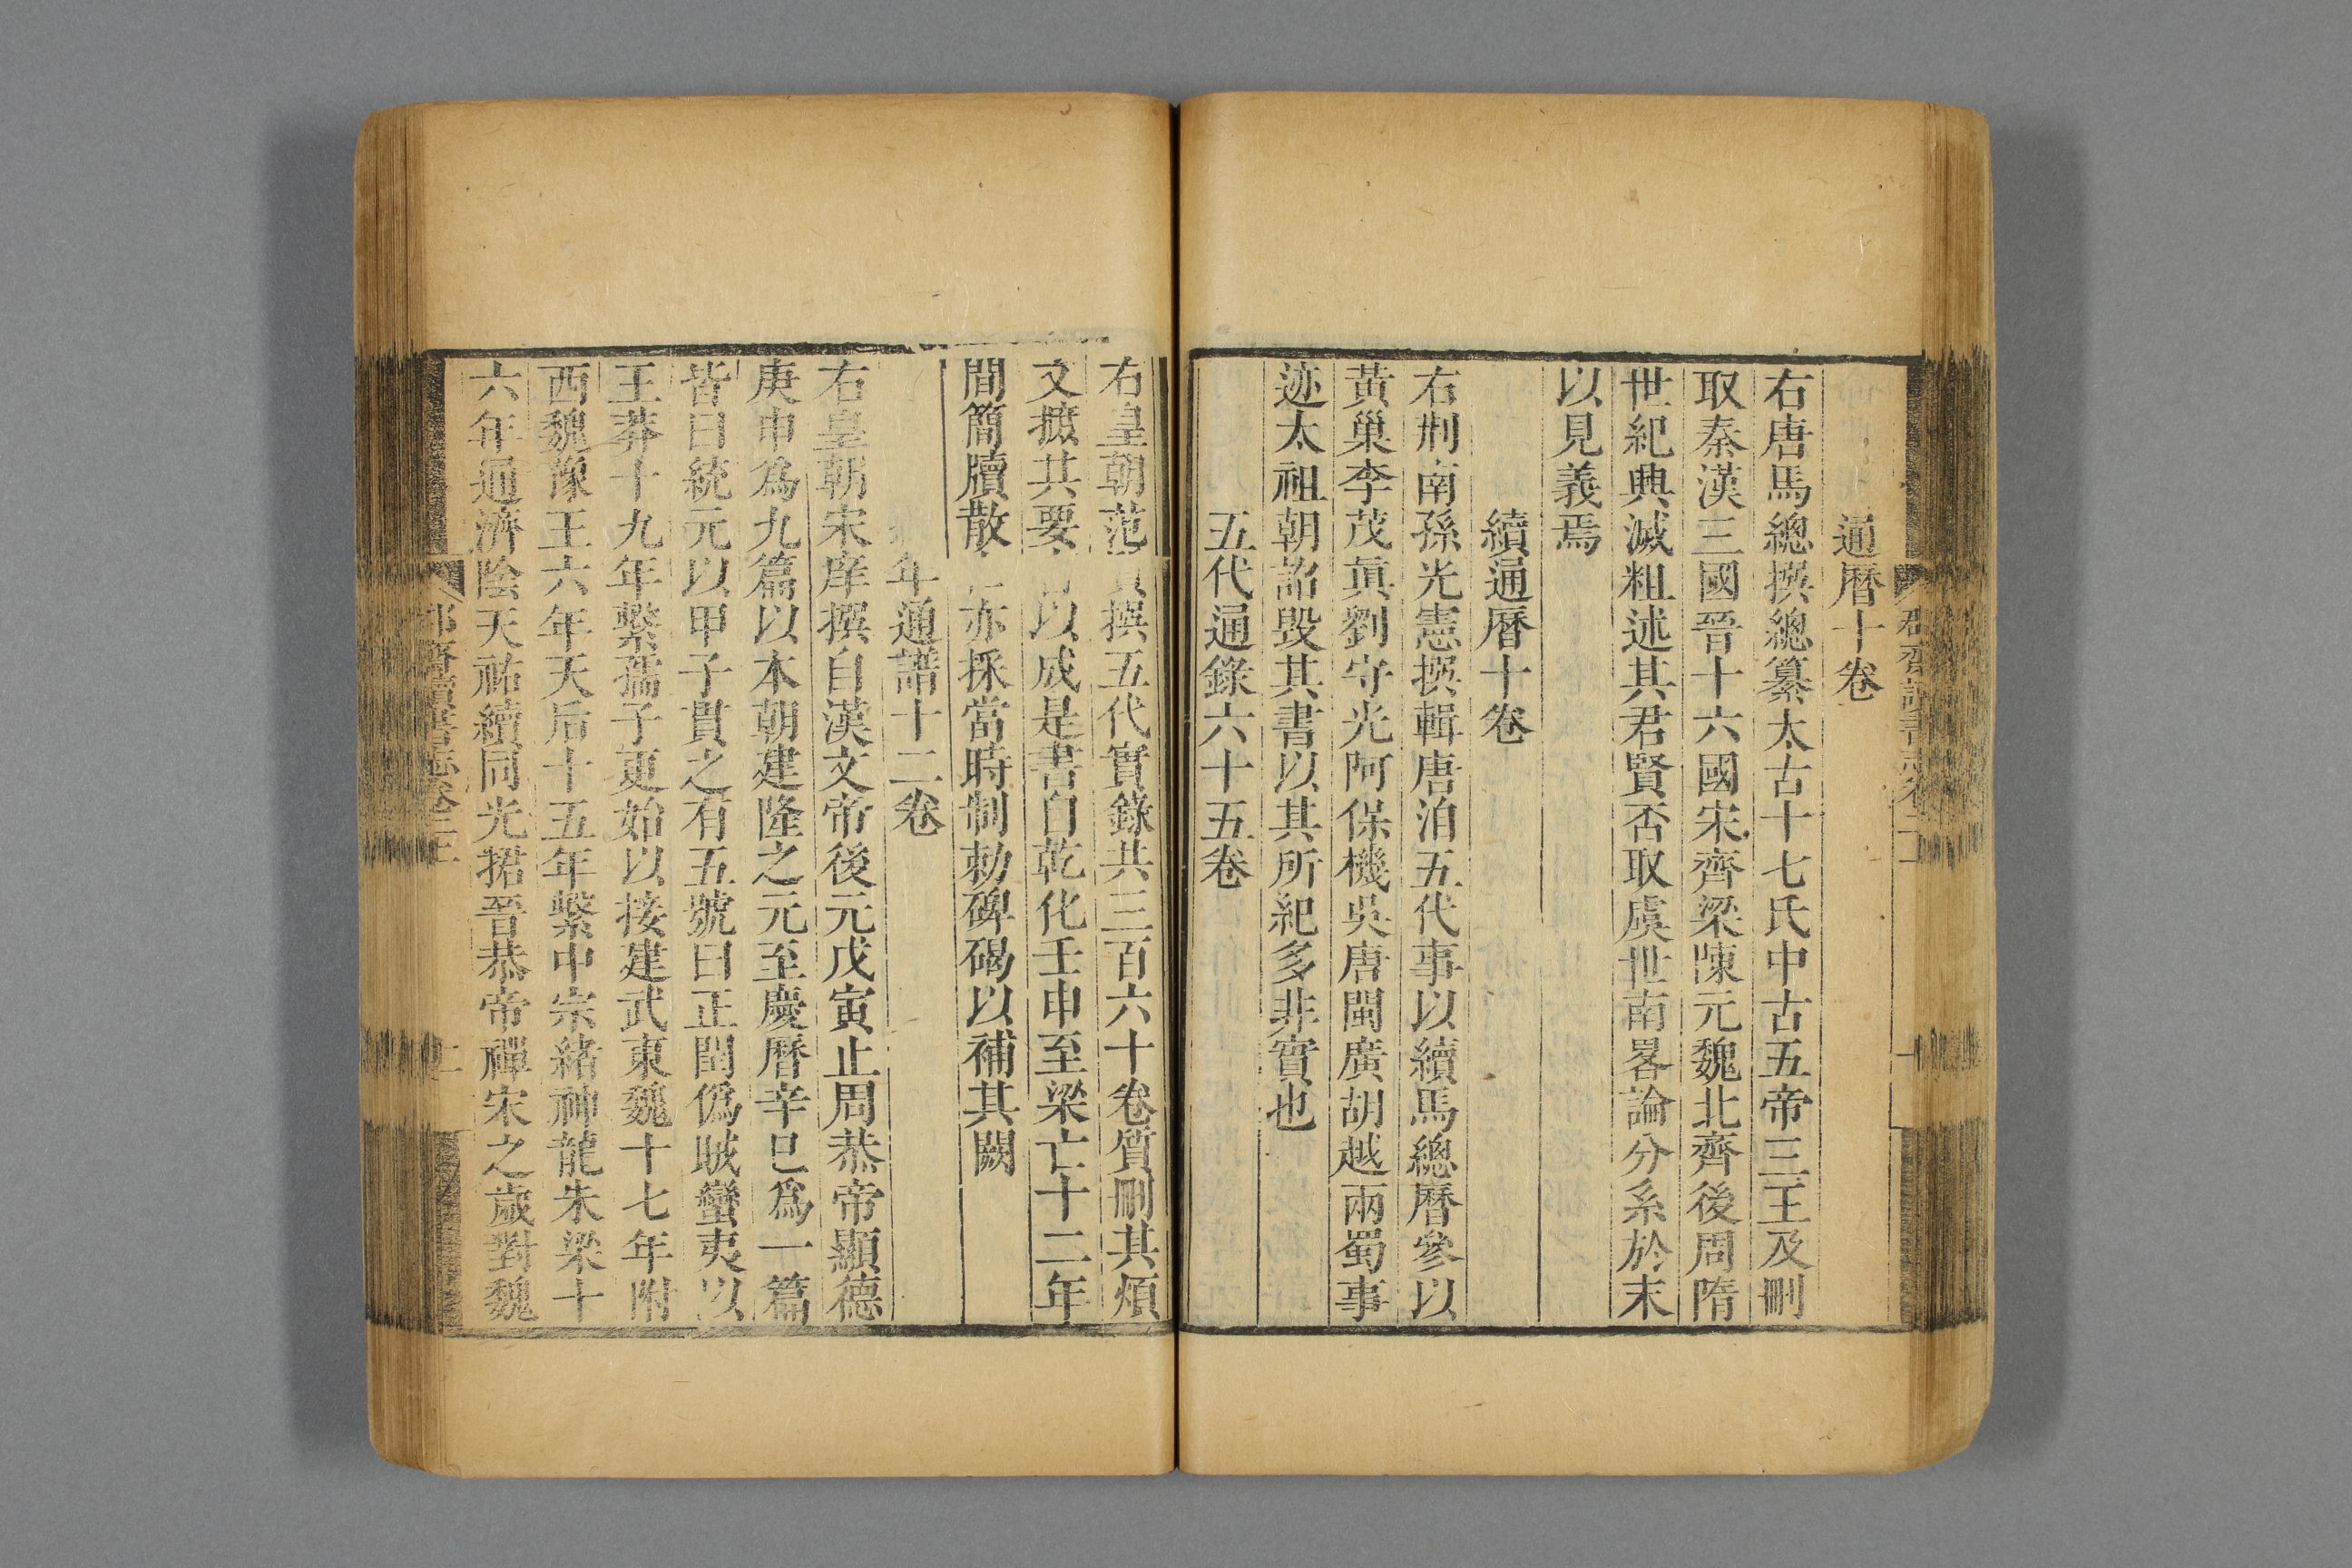 通曆十卷
右唐馬總撰總纂太古十七氏中古五帝三王及刪
取秦漢三國晉十六國宋齊梁陳元魏北齊後周隋
世紀興滅粗述其君賢否取虞世南畧論分系於末
以見義焉
續通曆十卷
右荆南孫光憲撰輯唐洎五代事以續馬總曆參以
黃巢李茂眞劉守光阿保機吳唐閩廣胡越兩蜀事
迹太祖朝詔毀其書以其所紀多非實也
五代通錄六十五卷
右皇朝范質撰五代實錄共三百六十卷質刪其煩
文摭其要以成是書自乾化壬申至梁亡十二年
間簡牘散亦採當時制勅碑碣以補其闕
年通譜十二卷
右皇朝宋庠撰自漢文帝後元戊寅止周恭帝顯德
庚申為九篇以本朝建隆之元至慶曆辛巳爲一篇
皆曰統元以甲子貫之有五號曰正閏偽賊蠻夷以
王莽十九年繫孺子更始以接建武東魏十七年附
西魏豫王六年天后十五年繫中宗緒神龍朱梁十
六年通濟陰天祐續同光捃晉恭帝禪宋之歲對魏